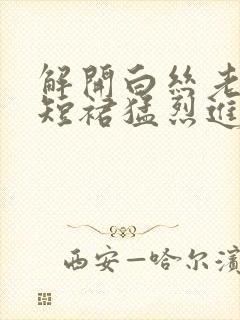 解開白絲老
短裙猛烈進
西安—哈尔濱